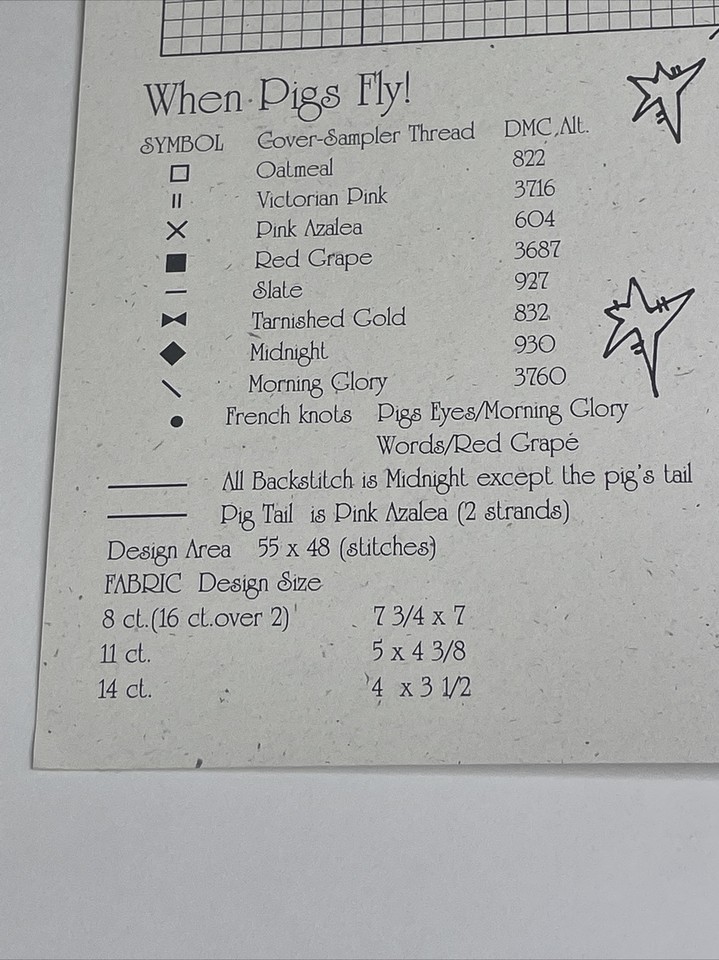 When Pigs Fly!
SYMBOL Cover-Sampler Thread DMC Alt.
Oatmeal 822
Victorian Pink 3716
Pink Azalea 604
Red Grape 3687
Slate 927
Tarnished Gold 832
Midnight 930
Morning Glory 3760
French knots Pigs Eyes/Morning Glory
Words/Red Grape
All Backstitch is Midnight except the pig's tail
Pig Tail is Pink Azalea (2 strands)
Design Area 55 x 48 (stitches)
FABRIC Design Size
8 ct.(16 ct.over 2) 7 3/4 x 7
11 ct. 5 x 4 3/8
14 ct. 4 x 3 1/2